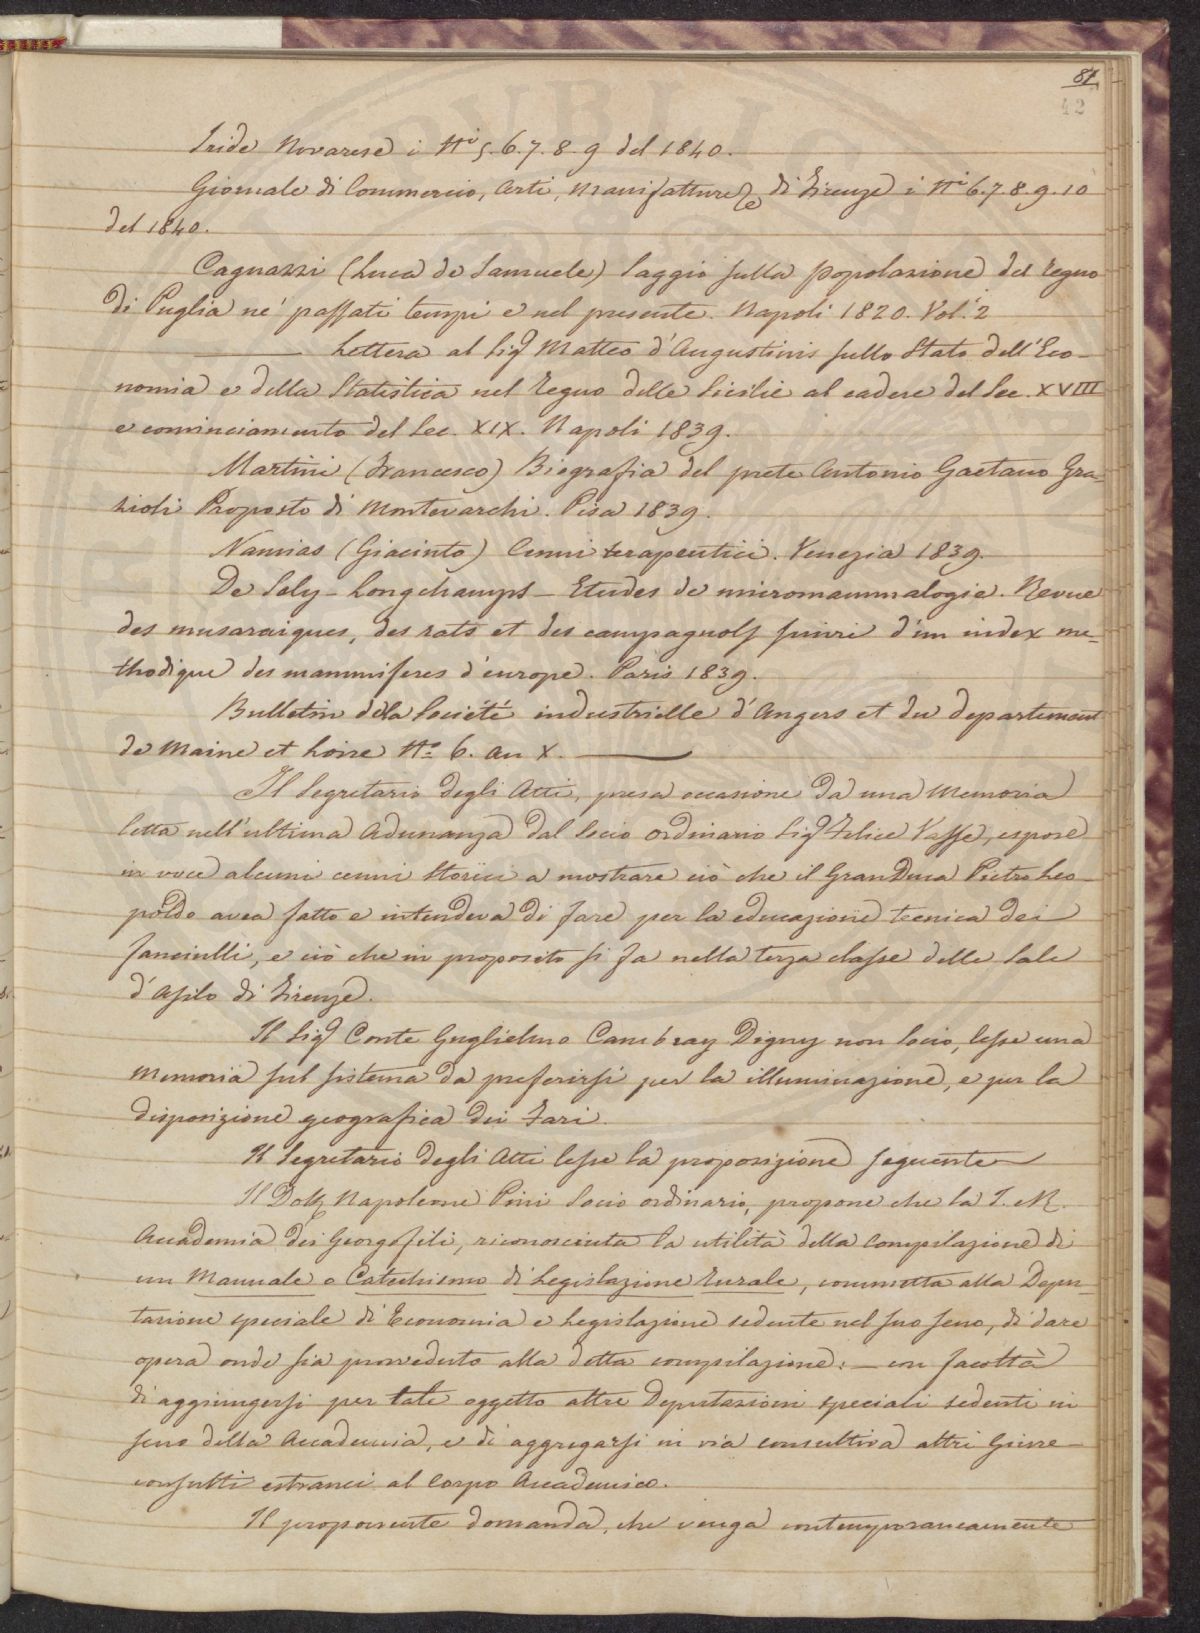 81
42
Iride Novarese i Ni 5. 6. 7. 8. 9 del 1840.
Giornale di Commercio, Arti, Manifatture &c di Firenze i Ni 6. 7. 8. 9. 10
del 1840.
Cagnazzi (Luca de Samuele) Saggio sulla popolazione del Regno
di Puglia ne' passati tempi e nel presente. Napoli 1820. Vol. 2
——— Lettera al Sigr Matteo d'Augustinis sullo Stato dell'Eco-
nomia e della Statistica nel Regno delle Sicilie al cadere del Sec. XVIII
e cominciamento del Sec. XIX. Napoli 1839.
Martini (Francesco) Biografia del prete Antonio Gaetano Gra-
zioli Proposto di Montevarchi. Pisa 1839.
Namias (Giacinto) Cenni terapeutici. Venezia 1839.
De Sely-Longchamps – Etudes de micromammalogie. Revue
des musaraignes, des rats et des campagnols suivi d'un index me-
thodique des mammiferes d'europe. Paris 1839.
Bulletin de la Société industrielle d'Angers et du departement
de Maine et Loire No. 6. an X. ———
Il Segretario degli Atti, presa occasione da una Memoria
letta nell'ultima Adunanza dal Socio ordinario Sigr Felice Vasse, espose
in voce alcuni cenni Storici a mostrare ciò che il GranDuca Pietro Leo-
poldo avea fatto e intendeva di fare per la educazione tecnica dei
fanciulli, e ciò che in proposito si fa nella terza classe delle Sale
d'Asilo di Firenze.
Il Sigr Conte Guglielmo Cambray Digny non Socio, lesse una
Memoria sul sistema da preferirsi per la illuminazione, e per la
disposizione geografica dei Fari.
Il Segretario degli Atti lesse la proposizione seguente
Il Dottr Napoleone Pini Socio ordinario, propone che la I. e R.
Accademia dei Georgofili, riconosciuta la utilità della compilazione di
un Manuale o Catechismo di Legislazione Rurale, commetta alla Depu-
tazione speciale di Economia e Legislazione sedente nel suo seno, di dare
opera onde sia provveduto alla detta compilazione; – con facoltà
di aggiungersi per tale oggetto altre Deputazioni speciali sedenti in
seno della Accademia, e di aggregarsi in via consultiva altri Giure-
consulti estranei al Corpo Accademico.
Il proponente domanda, che venga contemporaneamente